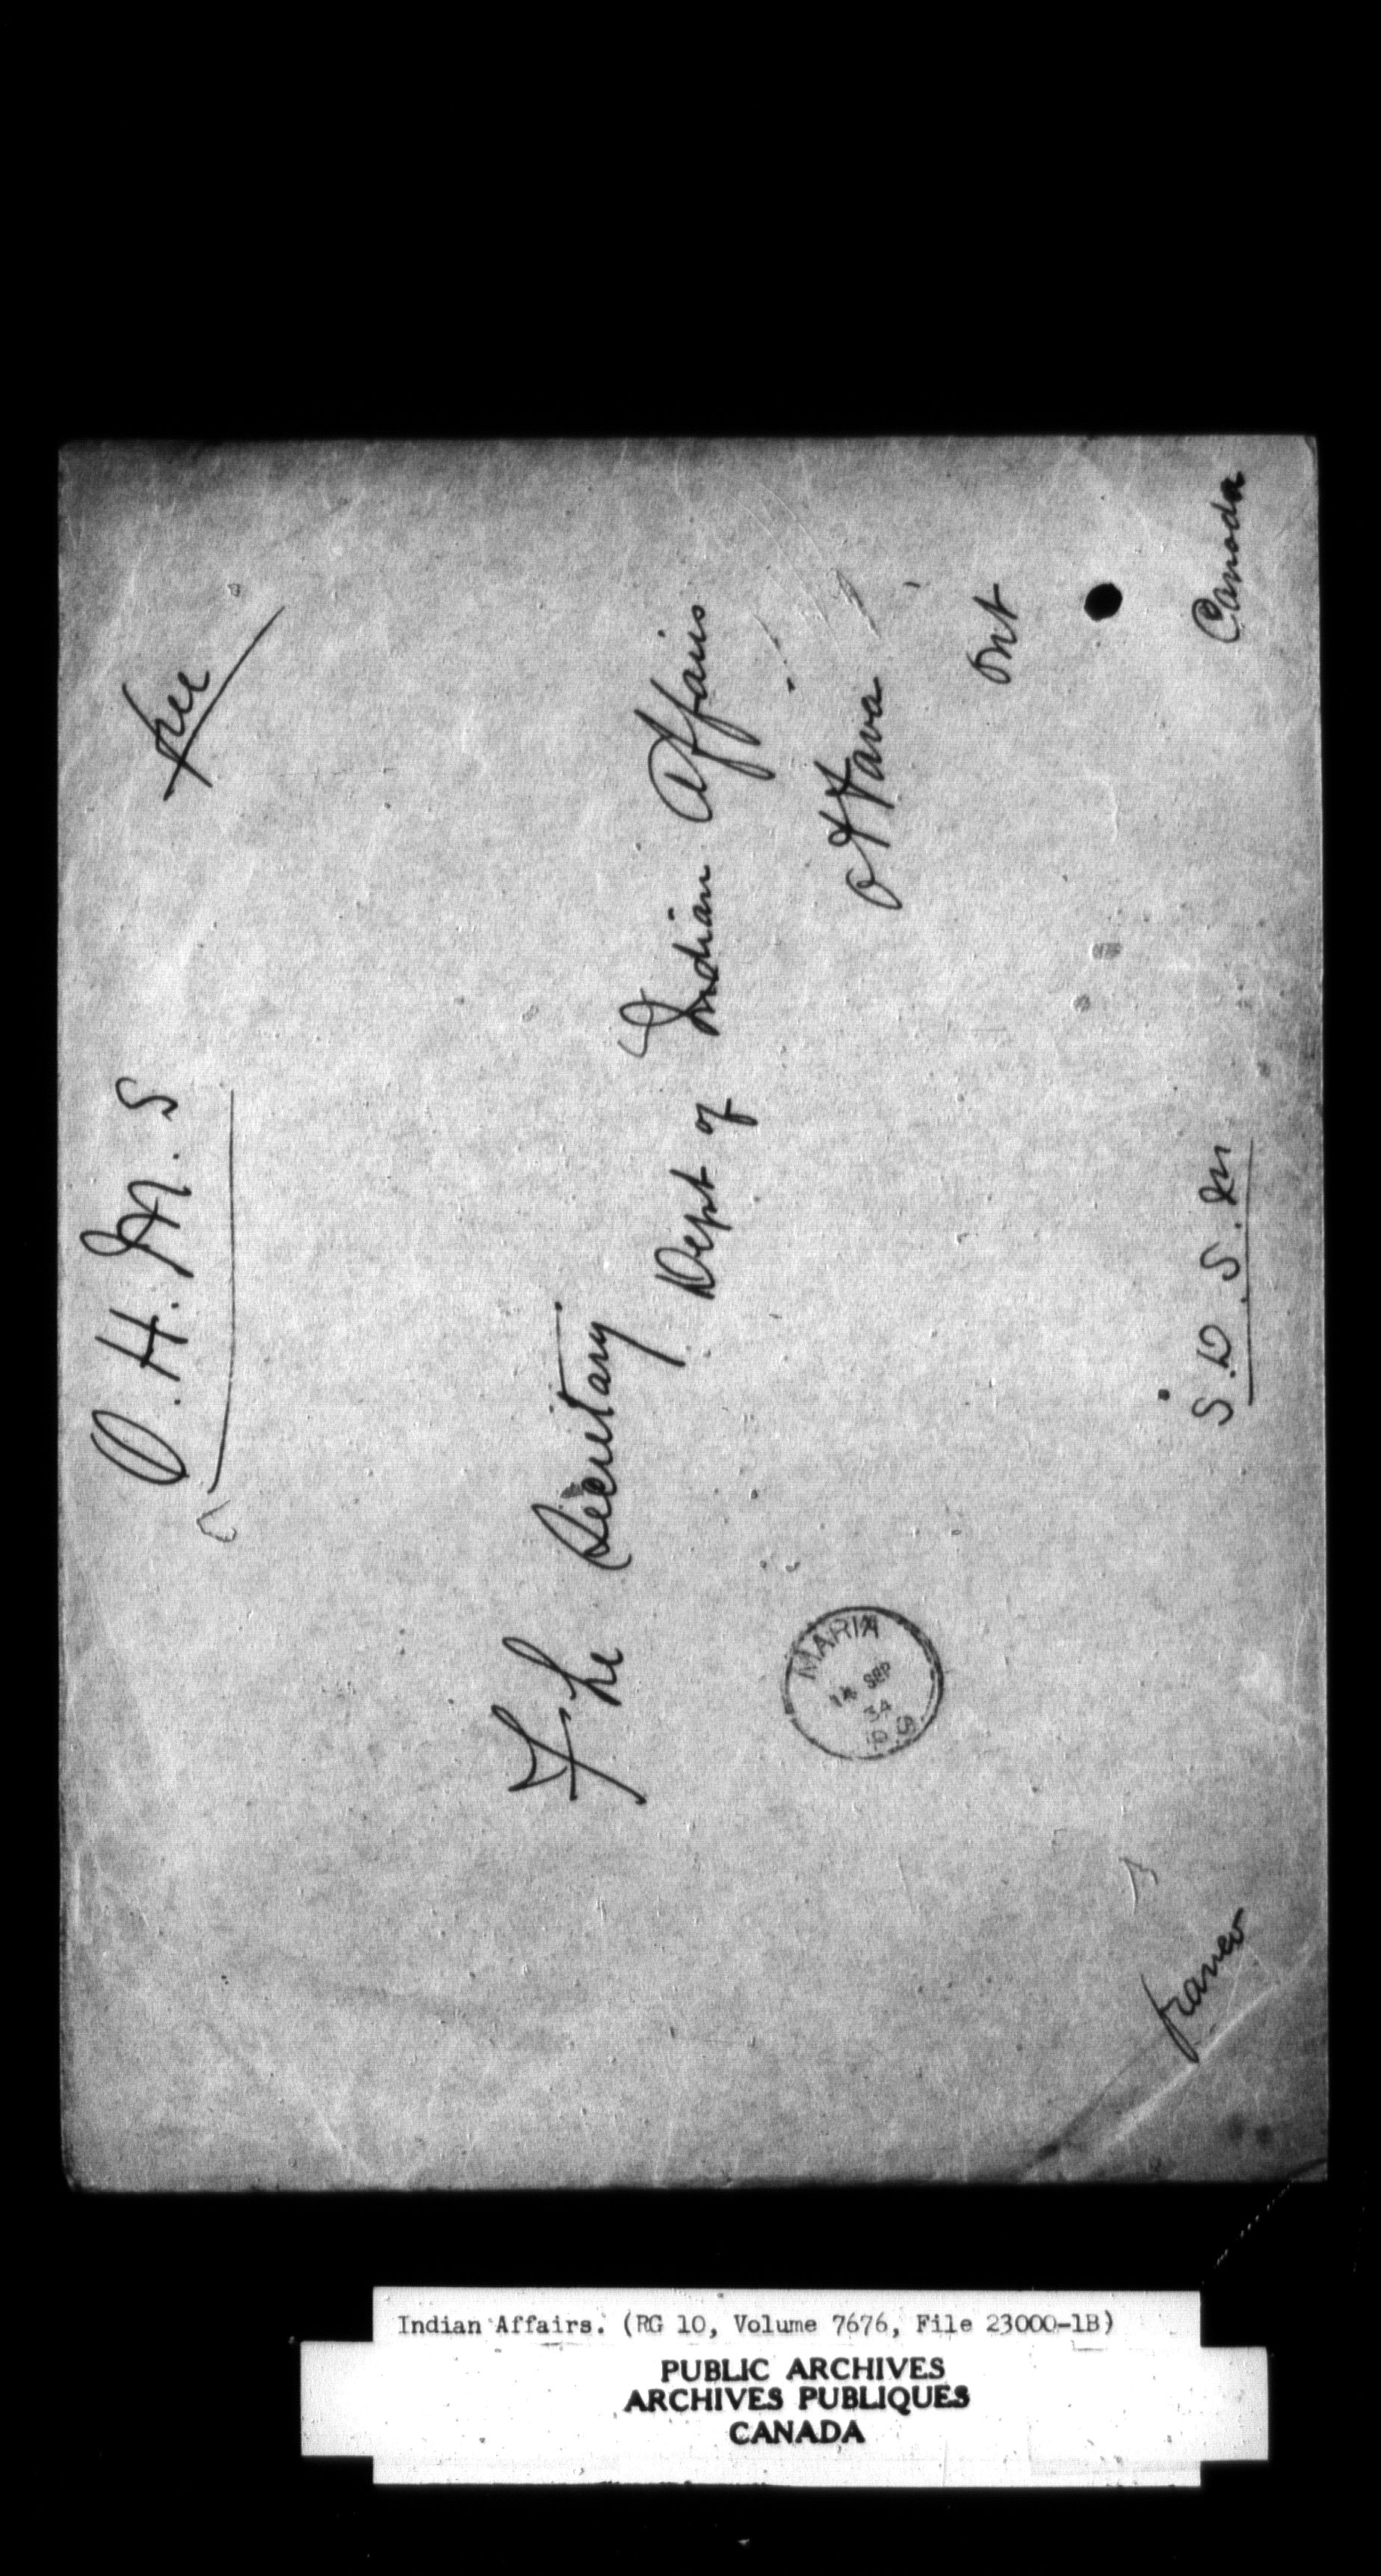 O.H.M.S
free
The Secretary
Dept of Indian Affairs
Ottava
Ont
MARIA
14 SEP
34
P Q
franco
S.D.S.M
Canada
Indian Affairs. (RG 10, Volume 7676, File 23000-1B)
PUBLIC ARCHIVES
ARCHIVES PUBLIQUES
CANADA